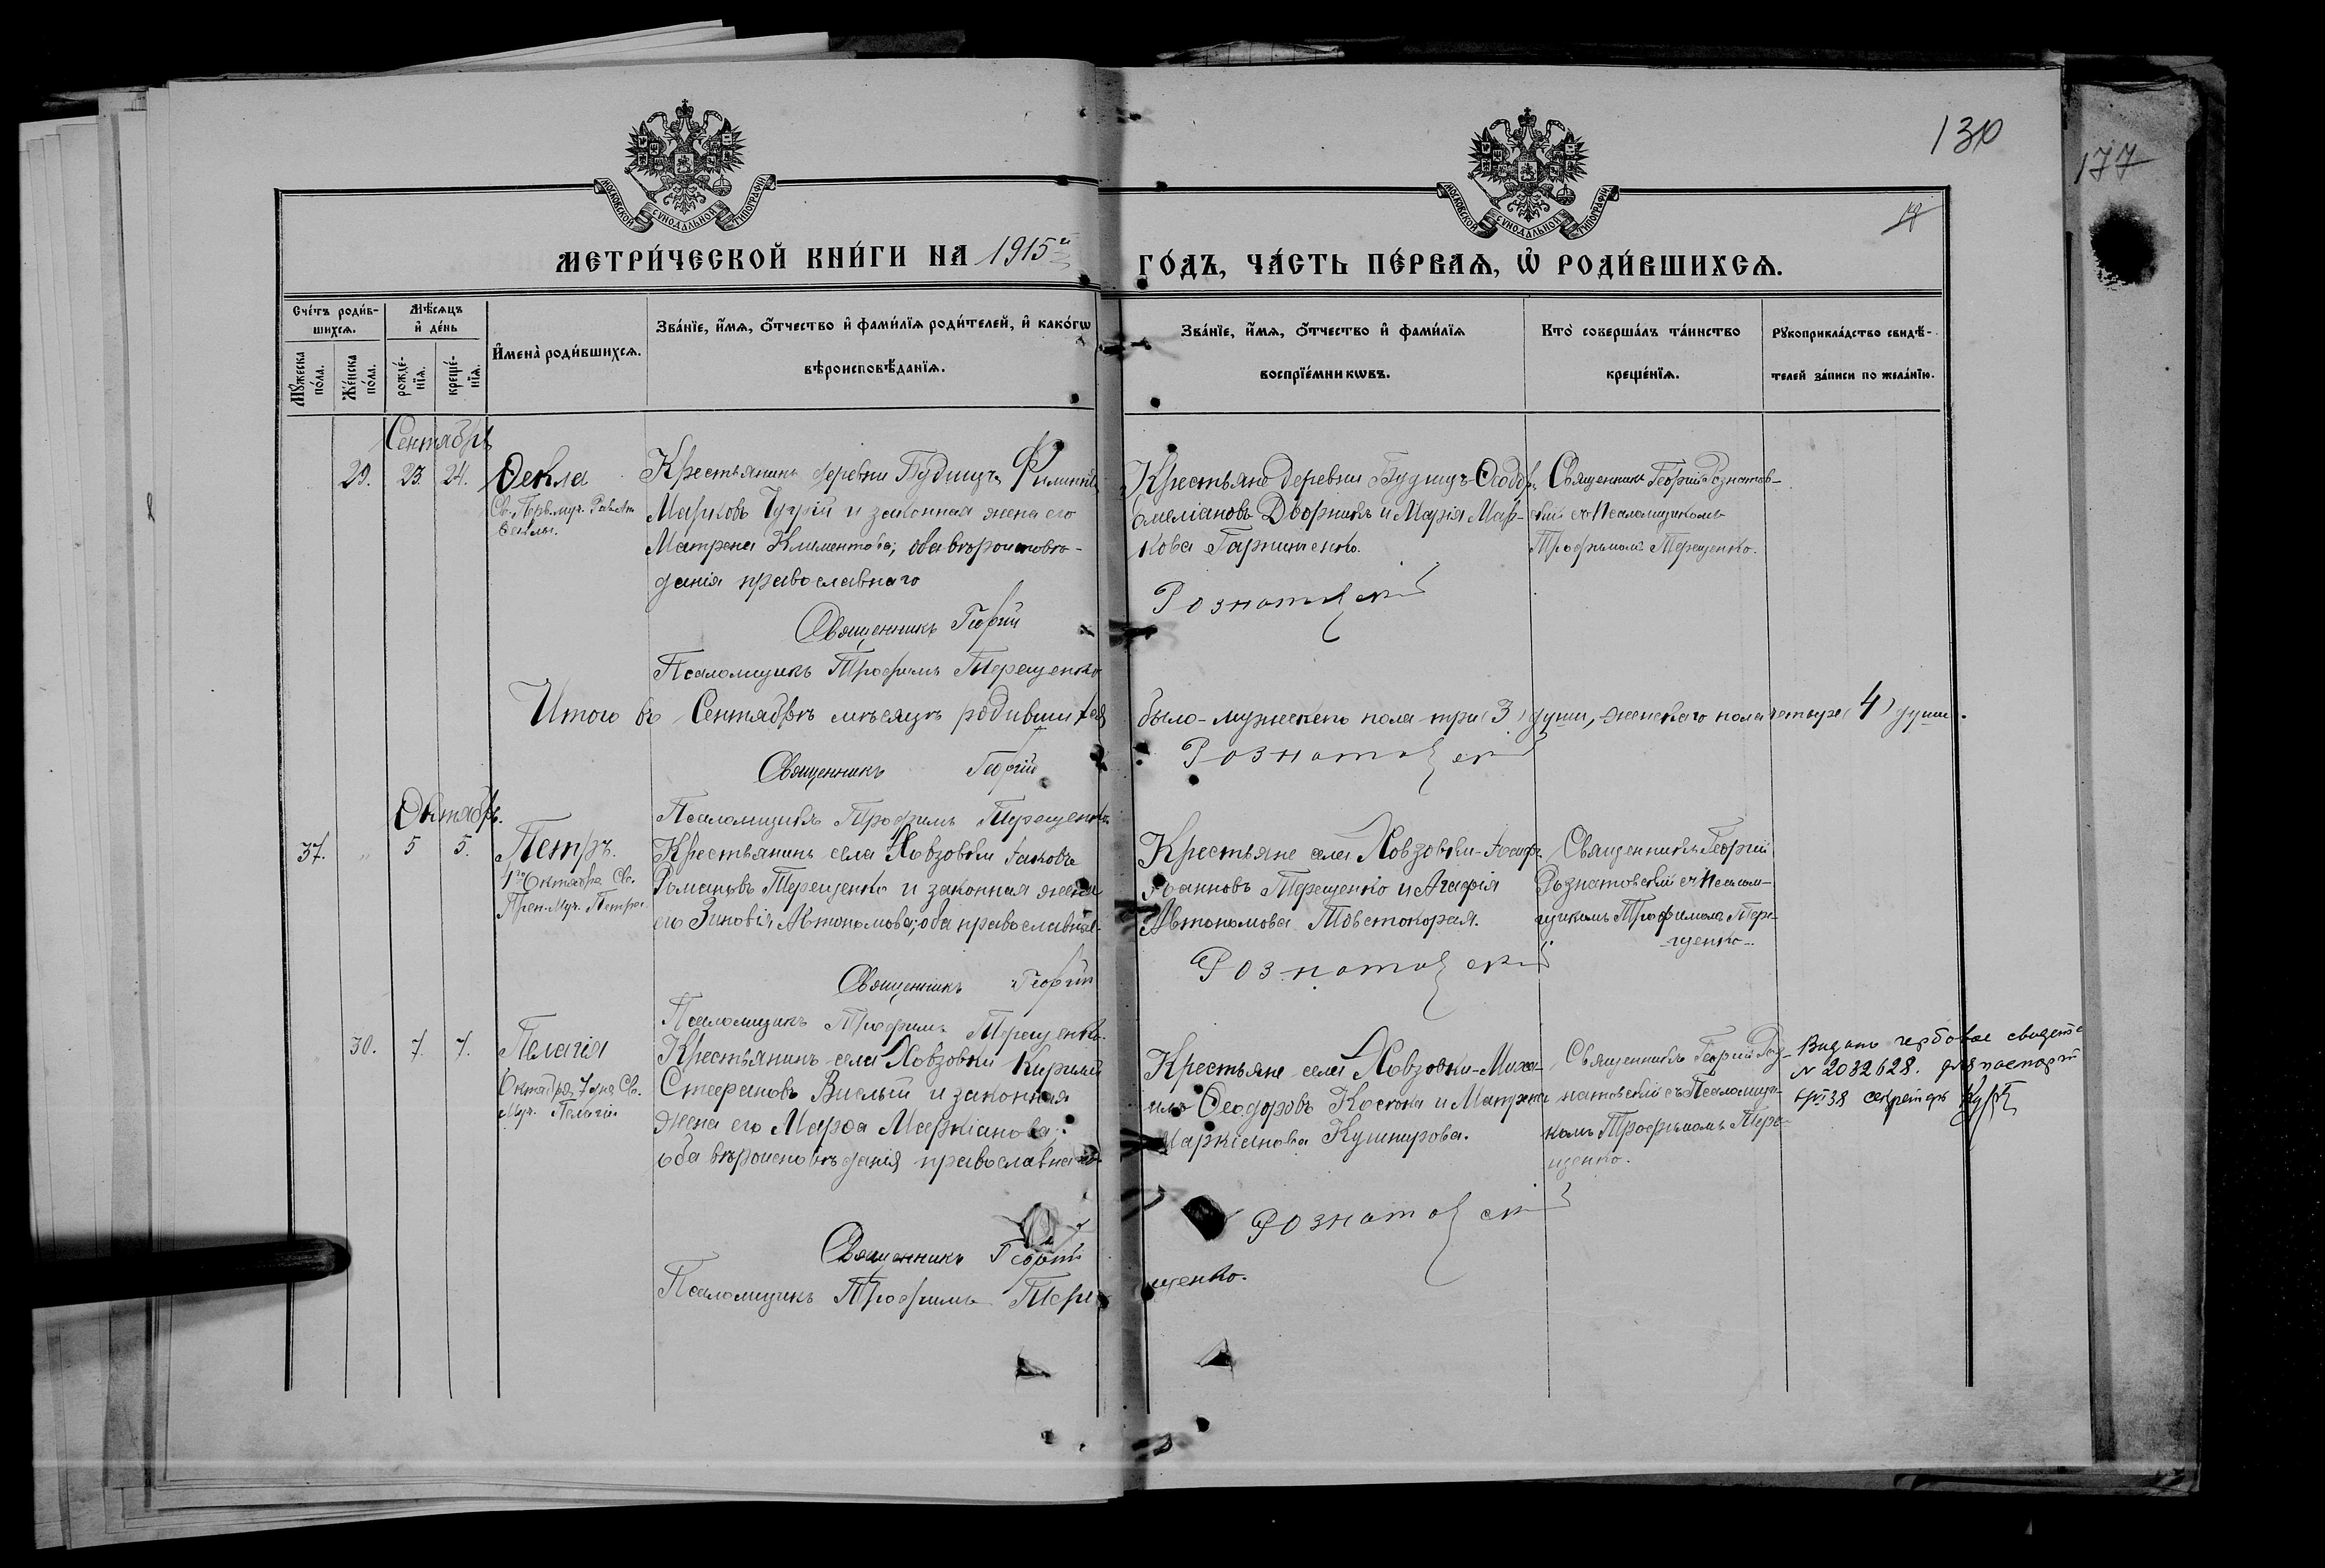 130
177
МОСКОВСКОЙ СѴНОДАЛЬНОЙ ТИПОГРАФІИ
МОСКОВСКОЙ СѴНОДАЛЬНОЙ ТИПОГРАФІИ
МЕТРИ́ЧЕСКОЙ КНИ́ГИ НА 1915й
ГО́ДЪ, ЧА́СТЬ ПЕ́РВАѦ, Ѡ҆ РОДИ́ВШИХСѦ.
Сче́тъ роди́в-
шихсѧ.
Мꙋ́жеска по́ла.
Же́нска по́ла.
Мѣ́сѧцъ и҆ де́нь
рожде́-нїѧ.
креще́-нїѧ.
И҆мена̀ роди́вшихсѧ.
Зва́нїе, и҆́мѧ, ѻ҆́тчество и҆ фами́лїѧ роди́телей, и҆ како́гѡ
вѣроисповѣ́данїѧ.
Зва́нїе, и҆́мѧ, ѻ҆́тчество и҆ фами́лїѧ
воспрїе́мникѡвъ.
Кто̀ соверша́лъ та́инство
креще́нїѧ.
Рꙋкоприкла́дство свидѣ́-
телей за́писи по жела́нїю.
Сентябрь
29. 23. 24. Ѳекла
Св. Первмуч. Равноап
Ѳеклы.
Крестьянинъ деревни Будищъ
Марковъ Чугрій и законная жена его
Матрена Климентова; оба вѣроисповѣ-
данія православнаго
Священникъ Георгій
Псаломщикъ Трофимъ Терещенко
Крестьяне деревни Будищъ
Омеліановъ Дворникъ и Марія Мар-
кова Гарпинченко.
Розматовскій
Священникъ Георгій Розматов-
скій съ Псаломщикомъ
Трофимомъ Терещенко.
Итого въ Сентябрѣ мѣсяцѣ родившихся было - мужескаго пола три (3) души, женскаго пола четыре (4) души.
Священникъ Георгій Розматовскій
Псаломщикъ Трофимъ Терещенко
Октябрь.
37. „ 5 5. Петръ.
4го Октября Св.
Преп. Муч. Петра.
Крестьянинъ села Ховзовки Іаковъ
Романовъ Терещенко и законная жена
его Зиновія Автономова; оба православные.
Священникъ Георгій
Псаломщикъ Трофимъ Терещенко.
Крестьяне села Ховзовки - Іосифъ
Іоанновъ Терещенко и Агафія
Автономова Товстокорая.
Розматовскій
Священникъ Георгій
Розматовскій съ Псалом-
щикомъ Трофимомъ Тере-
щенко.
30. 7. 7. Пелагія
Октября 7 дня Св.
Муч. Пелагіи
Крестьянинъ села Ховзовки Кириллъ
Стефановъ Вислый и законная
жена его Марѳа Маркіанова;
оба вѣроисповѣданія православнаго.
Крестьяне села Ховзовки - Миха-
илъ Ѳеодоровъ Костюкъ и Матрона
Маркіанова Кушнирова.
Священникъ Георгій Роз-
матовскій съ Псаломщи-
комъ Трофимомъ Тере-
щенко.
Видано гербовое свидет
N 2032628. для паспорт
38 секретарь
Священникъ Георгій Розматовскій
Псаломщикъ Трофимъ Терещенко.